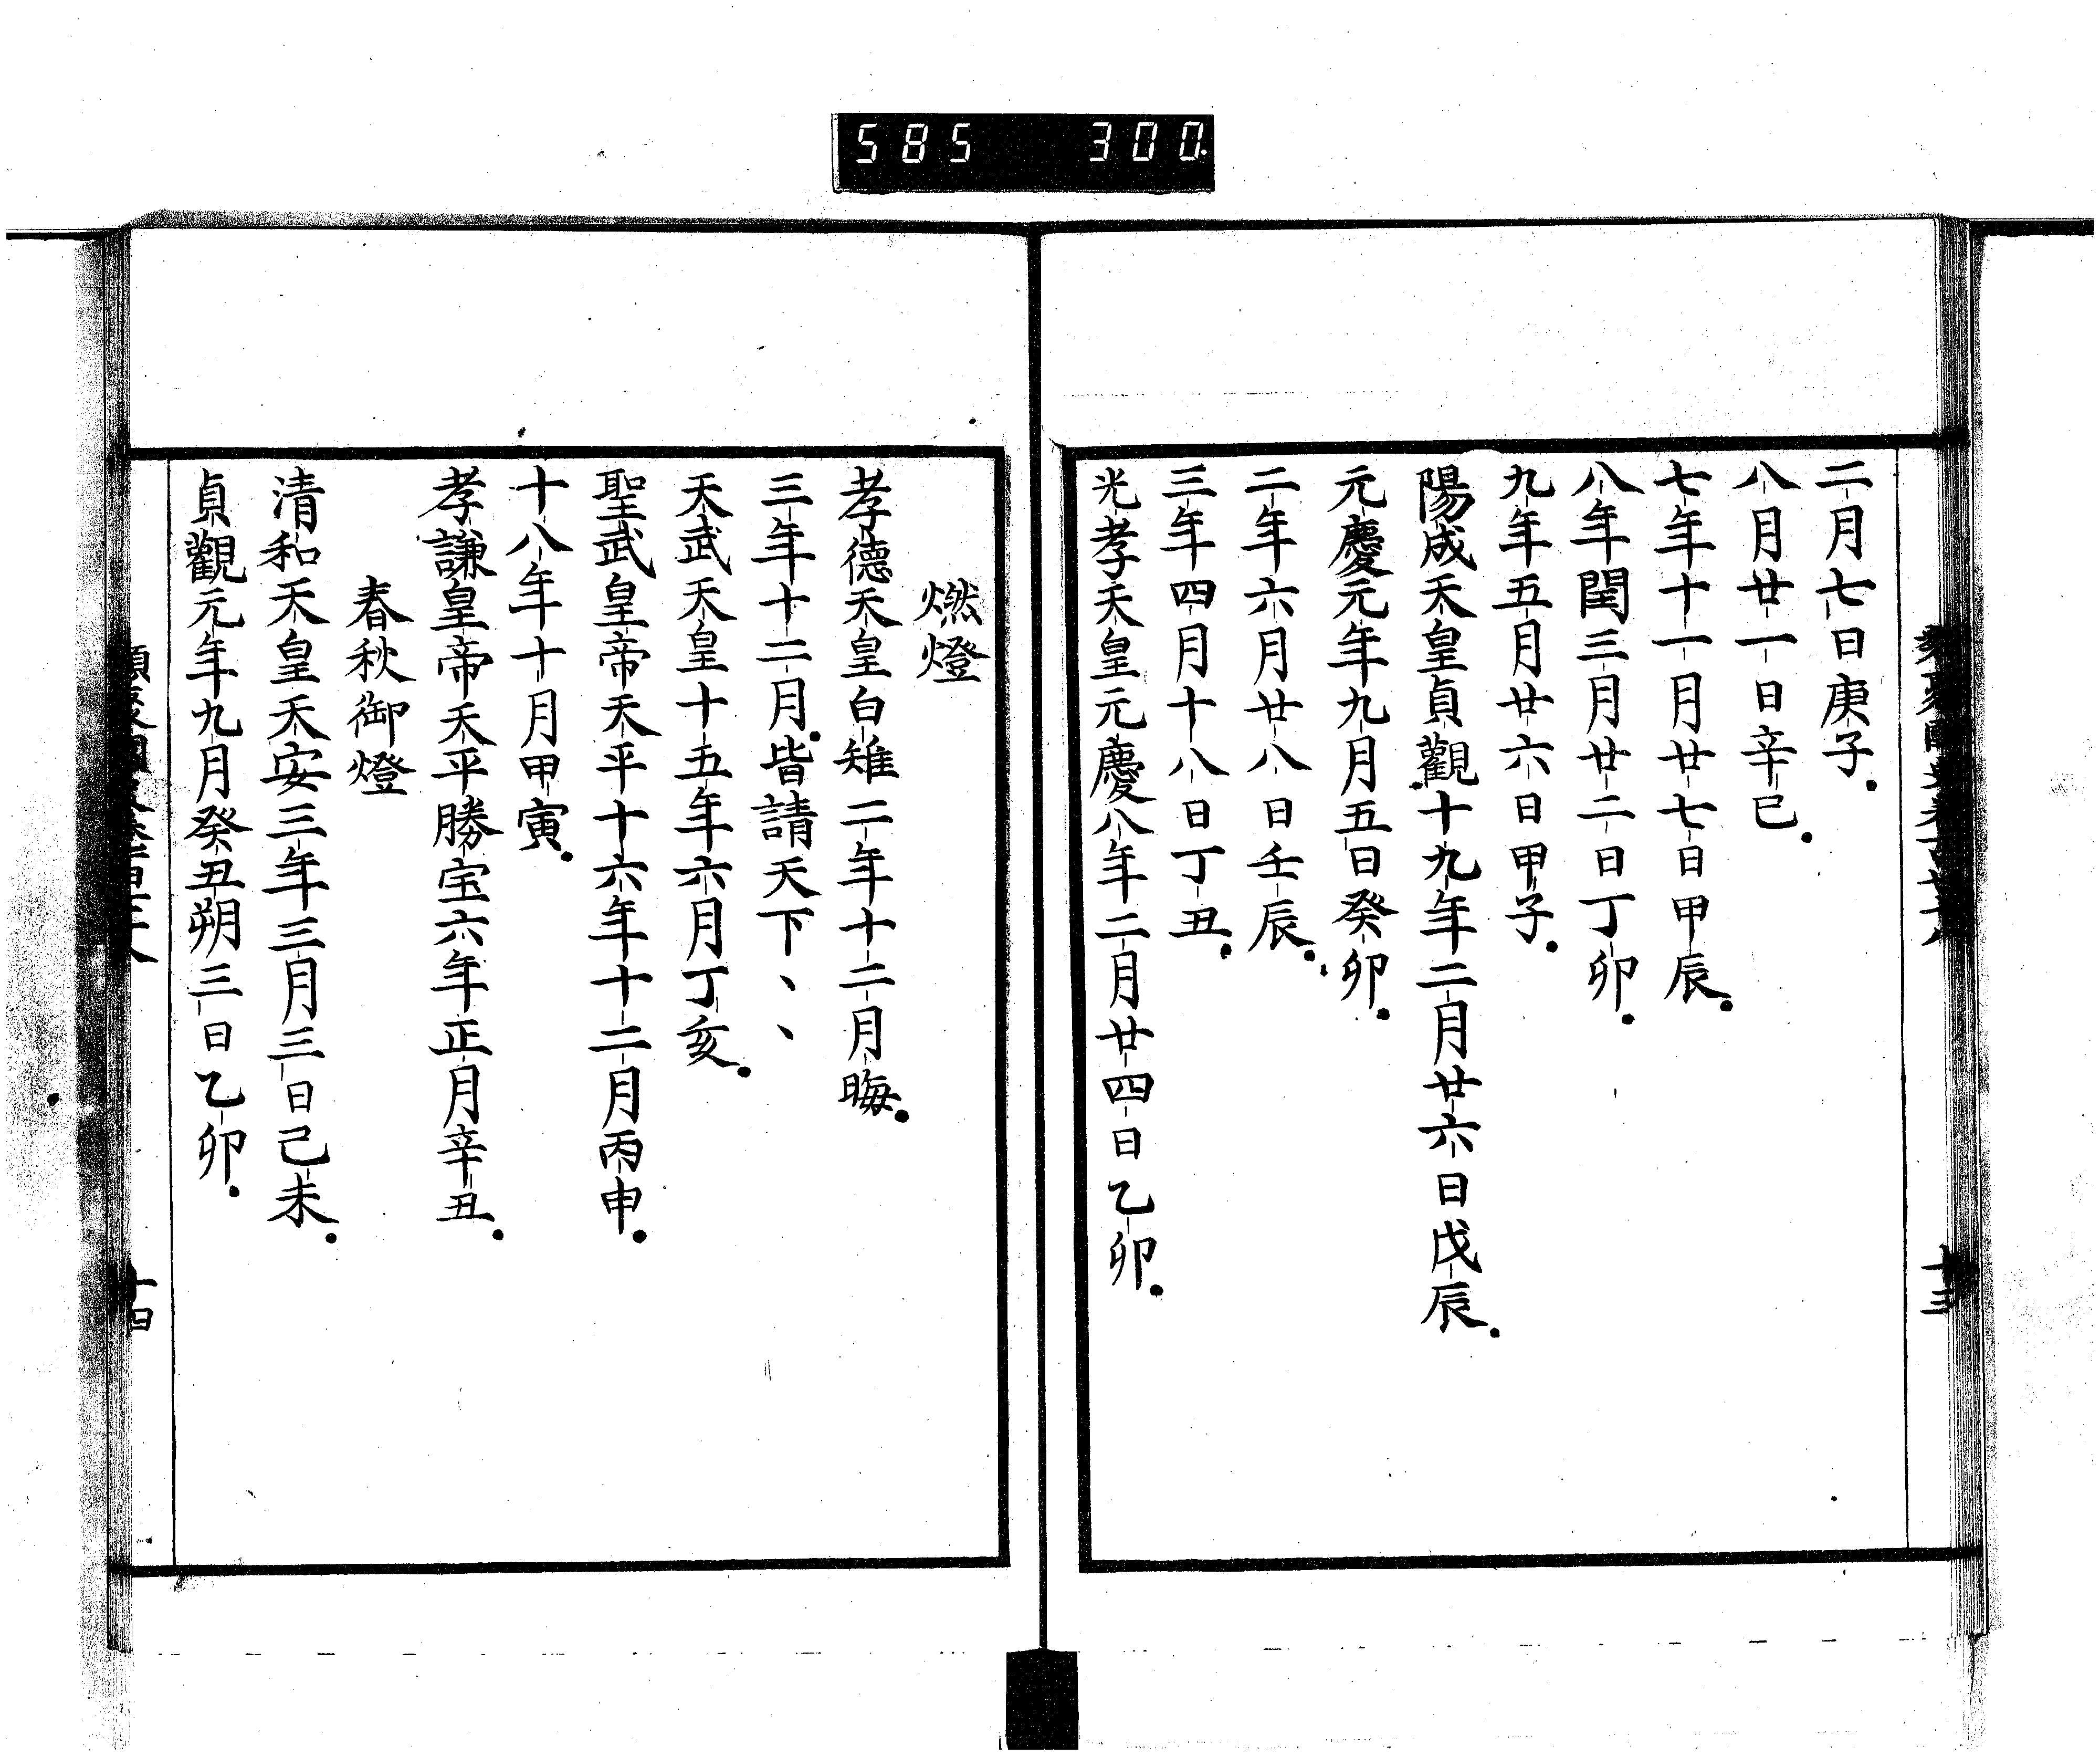 585 300
二月七日庚子
八月廿一日辛巳
七年十一月廿七日甲辰
八年閏三月廿二日丁卯
九年五月廿六日甲子
陽成天皇貞觀十九年二月廿六日戊辰
元慶元年九月五日癸卯
二年六月廿八日壬辰
三年四月十八日丁丑
光孝天皇元慶八年二月廿四日乙卯
十三
燃燈
孝德天皇白雉二年十二月晦
三年十二月皆請天下、、
天武天皇十五年六月丁亥
聖武皇帝天平十六年十二月丙申
十八年十月甲寅
孝謙皇帝天平勝宝六年正月辛丑
春秋御燈
清和天皇天安三年三月三日己未
貞觀元年九月癸丑朔三日乙卯
十四